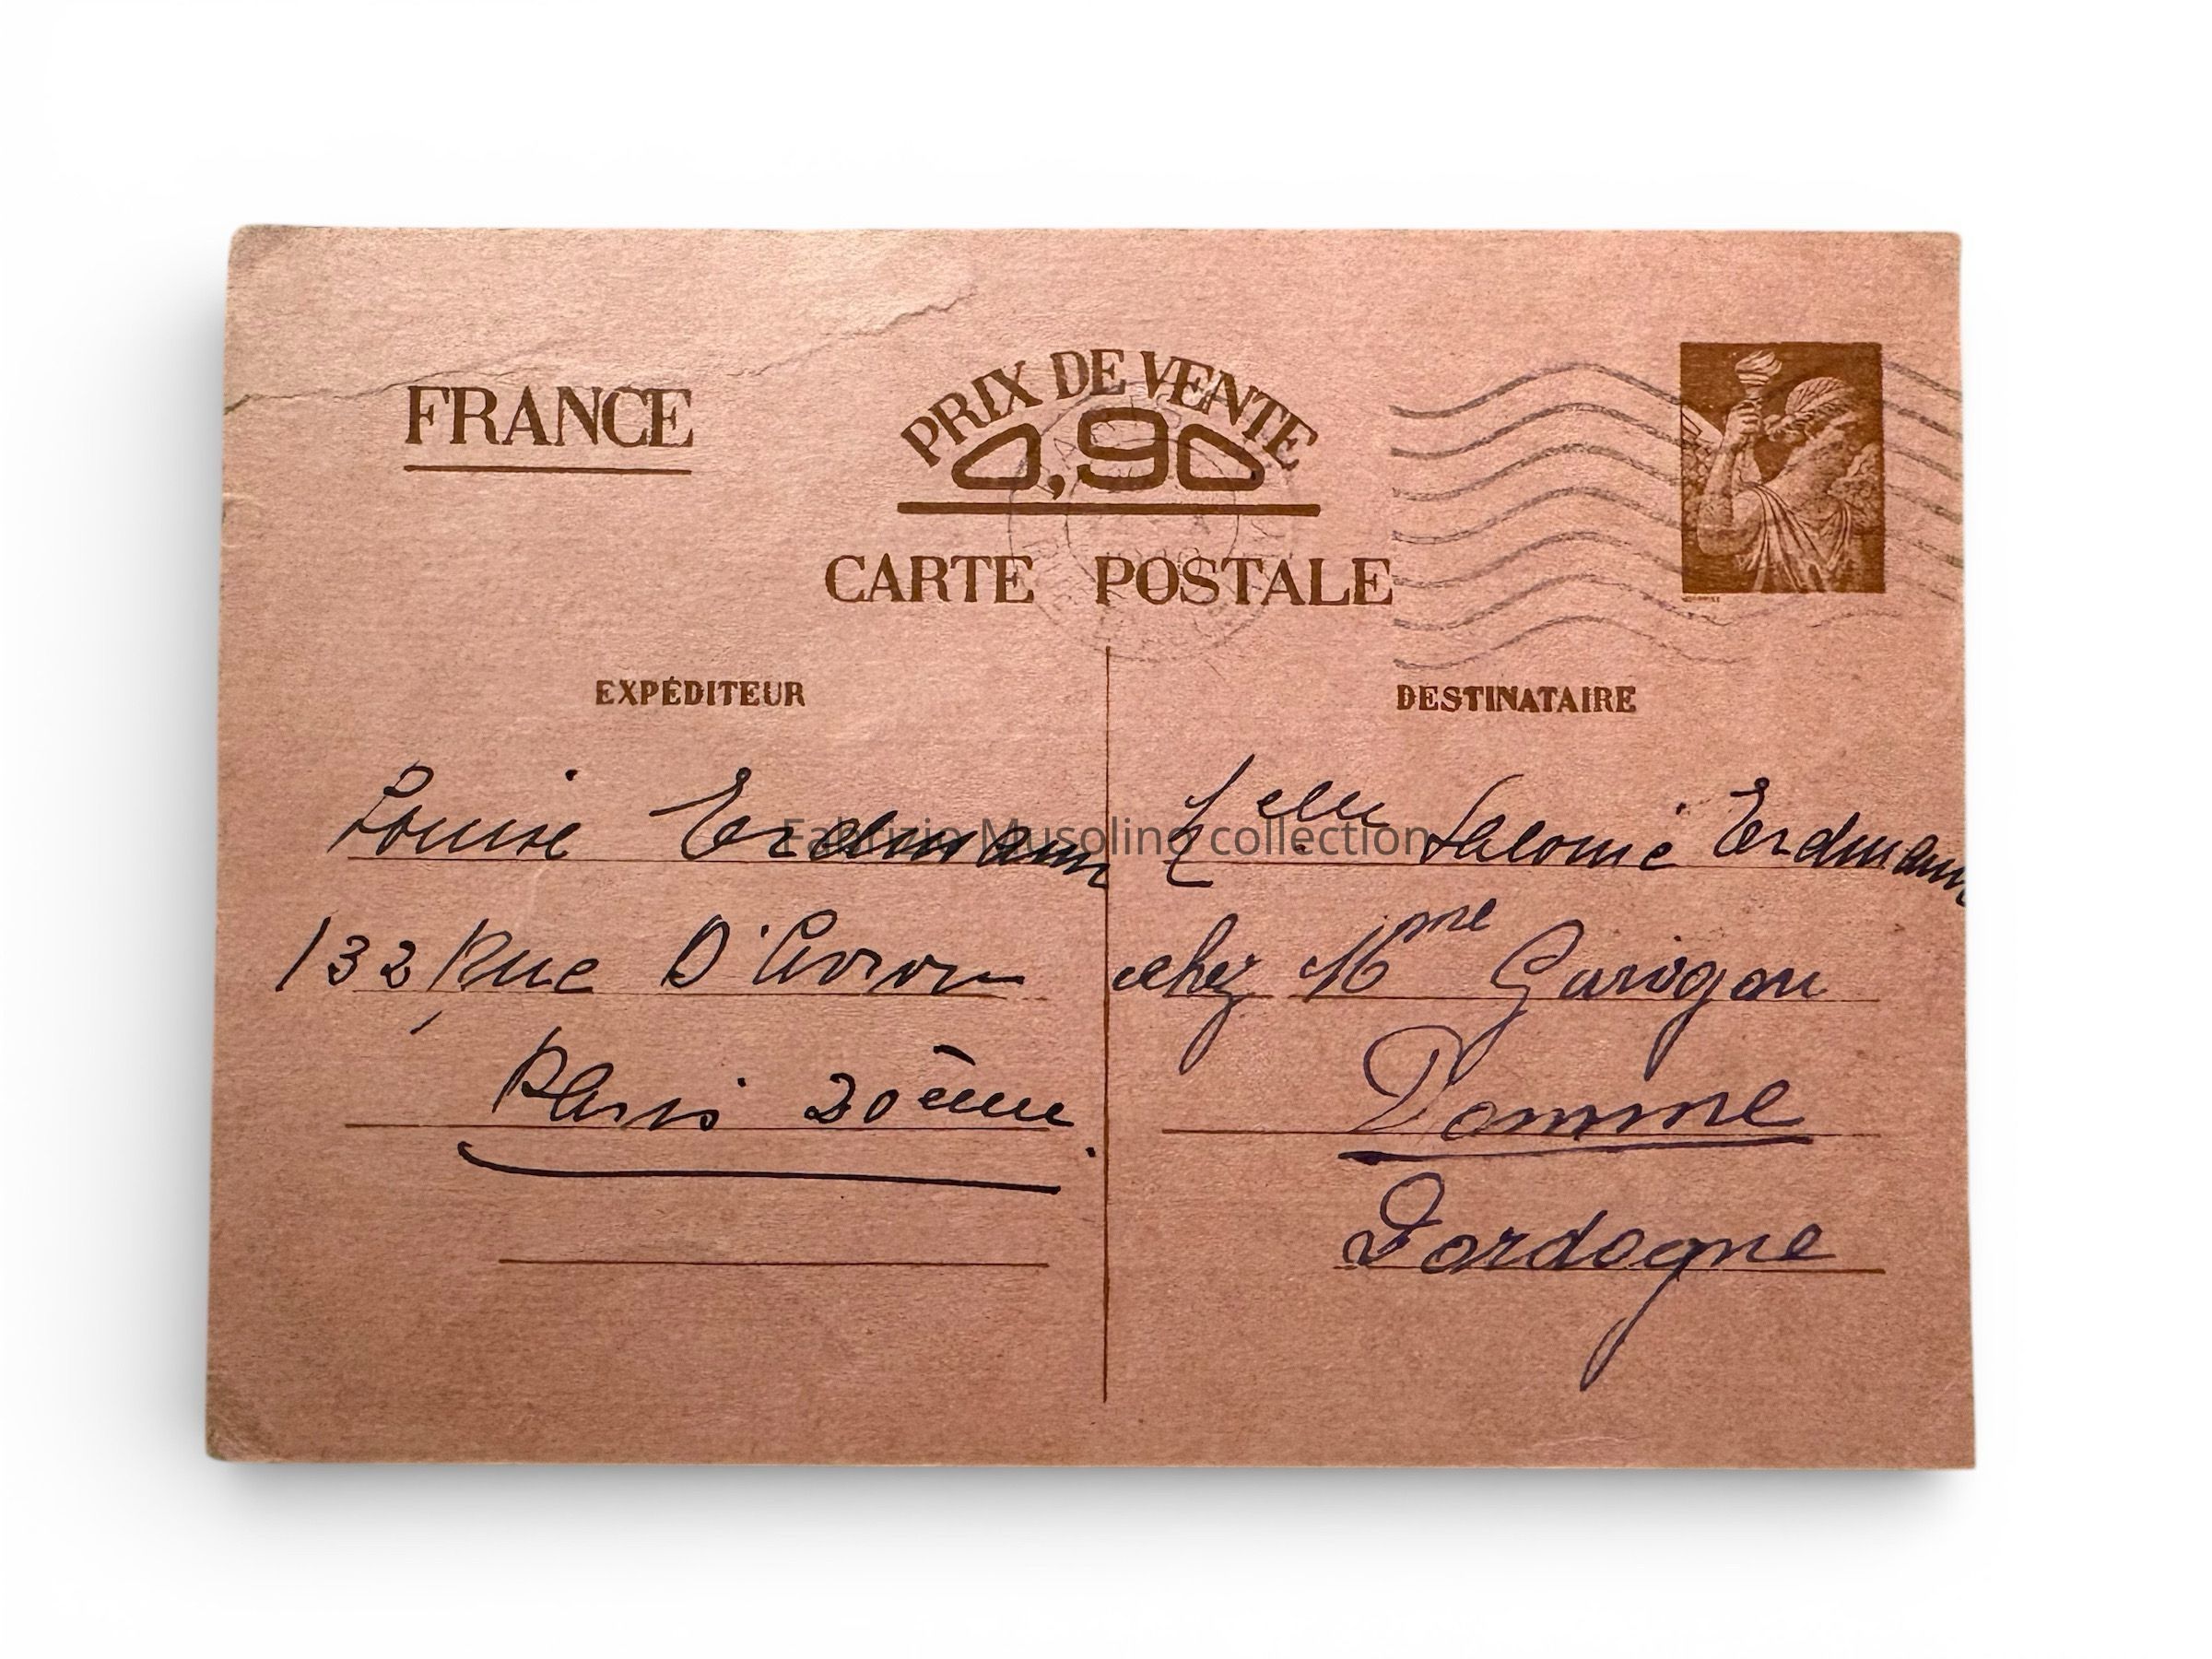 FRANCE
PRIX DE VENTE
0,90
CARTE POSTALE
EXPÉDITEUR
Louise Erdmann
132 Rue D'Avron
Paris 20ème.
DESTINATAIRE
Melle Salomé Erdmann
chez Mme Garrigou
Domme
Dordogne
Fabrizio Musolino collection